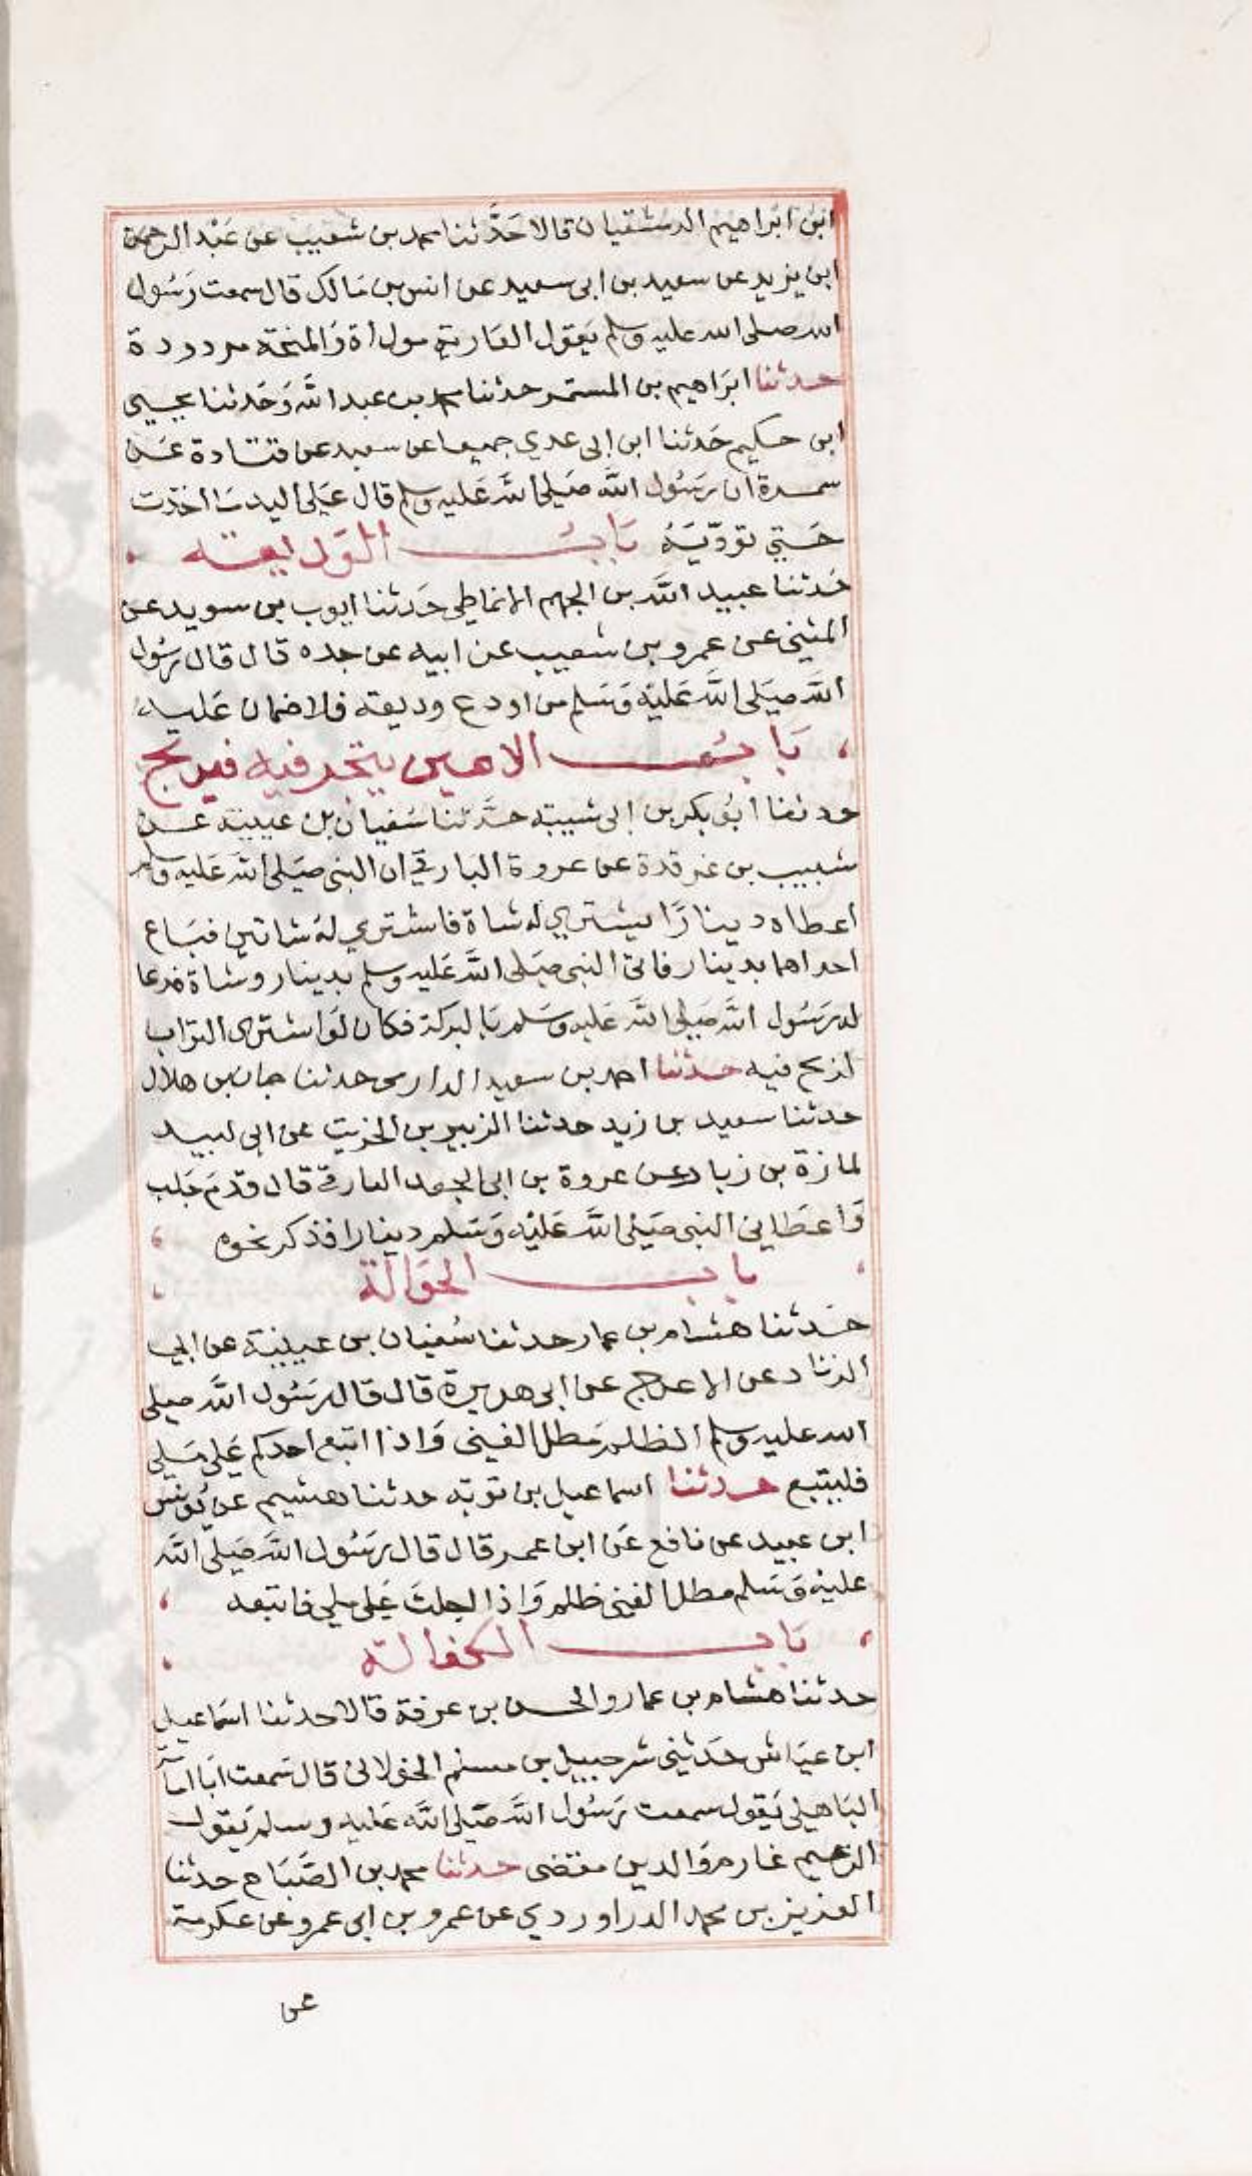 ابن ابراهيم الدمشقيان قالا حَدَّثنا محمد بن شعيب عن عَبْد الرحمن
ابن يزيد عن سعيد بن ابى سعيد عن انس بن مَالك قال سمعت رَسُول
الله صلى الله عليه وسلم يَقول العَارية موداة وَالمنحة مردودة
حدثنا ابرَاهيم بن المستمر حدثنا محمد بن عبد الله وَحَدثنا يحيى
ابن حكيم حَدثنا ابن ابى عدي جميعا عن سعيد عن قتادة عَن
سمرة ان رسَول الله صَلى الله عَليه وسلم قال عَلى اليد مَا اخذت
حَتي تودّيَهُ بَابُ الوَديعته
حَدثنا عبيد الله بن الجهم الانماطي حَدثنا ايوب بن سويد عن
المثني عن عمرو بن شعيب عن ابيه عن جده قال قال رسُول
الله صَلى الله عَليْه وَسَلم من اودع وديعته فلا ضمان عَليه
بَابُ الامين يتجر فيه فيربح
حدثنا ابُو بكر بن ابى شيبته حَدَّثنا سُفيان بن عيينة عن
شبيب بن غرقدة عن عروة البارقي ان النبى صَلى الله عَليه وسلم
اعطاه دينارًا يشتري له شاة فاشتري لهُ شاتين فبَاع
احداهما بدينار فاتى النبى صَلى الله عَليه وسلم بدينار وشاة فدعا
له رسَُول الله صَلى الله عَليه وَسَلم بَالبركة فكان لَو اشترى التراب
لربح فيه حدثنا احمد بن سعيد الدارمى حدثنا حبان بن هلال
حدثنا سعيد بن زيد حدثنا الزبير بن الخريت عن ابى لبيد
لمازة بن زياد عن عروة بن ابى الجعد البارقي قال قدمَ جَلب
وَاعطاني النبى صَلى الله عَليْه وَسَلم دينارا فذكر نحوه
باب الحوَالة
حَدثنا هشام بن عمار حدثنا سُفيان بن عيينة عن ابي
الزناد عن الاعرج عن ابى هريرة قال قال رسَُول الله صلى
الله عليه وسلم الظلم مَطل الغني وَاذا اتبع احدكم عَلى مَلي
فليتبع حدثنا اسماعيل بن توبَه حدثنا هشيم عن يُونس
ابن عبيد عن نافع عَن ابن عمر قال قال رسَُول الله صَلى الله
عليْه وَسَلم مطل الغنى ظلم وَاذا احلتَ عَلى ملي فاتبعه
بَاب الكفالته
حدثنا هشام بن عمار والحسن بن عرفة قالا حدثنا اسَماعيل
ابن عيَاش حَدثني شرحبيل بن مسلم الخولانى قال سَمعت ابَا امامَة
البَاهلي يَقول سمعت رَسُول الله صَلى الله عَليه وسلم يَقول
الزعيم غارم وَالدين مقضى حدثنا محمد بن الصَّبَاح حدثنا
العزيز بن محمد الدراوردي عن عمرو بن ابى عمرو عن عكرمة
عن